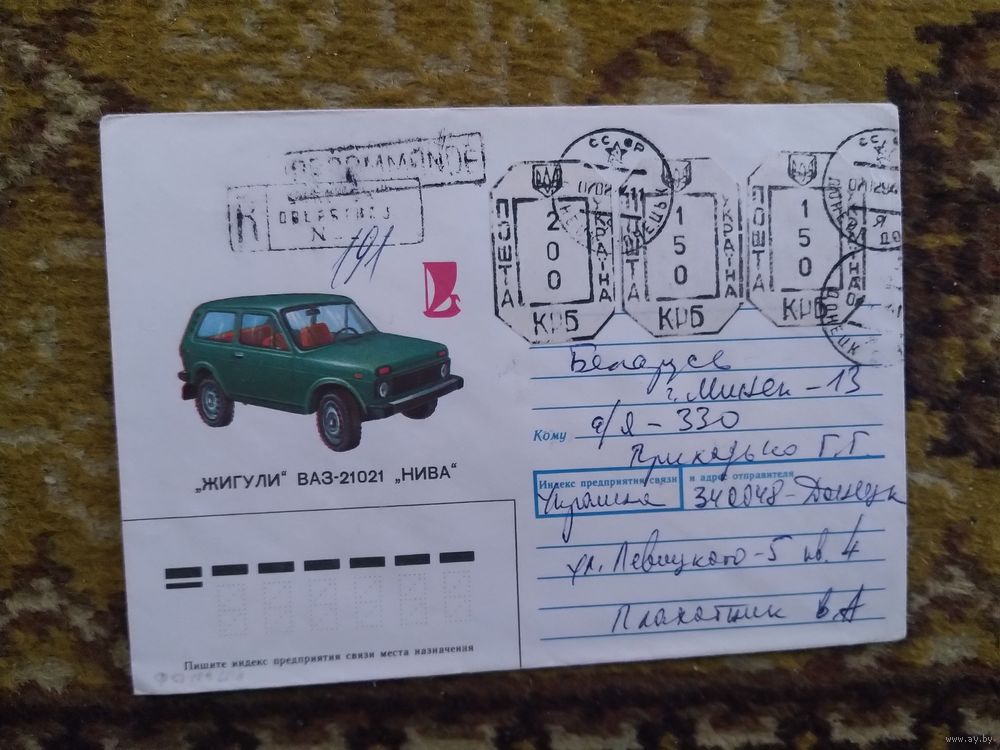 RECOMMANDE
R
N
191
ПОШТА 200 УКРАЇНА КРБ
ПОШТА 150 УКРАЇНА КРБ
ПОШТА 150 УКРАЇНА КРБ
СССР
ДОНЕЦК
„ЖИГУЛИ“ ВАЗ-21021 „НИВА“
Беларусь
г. Минск - 13
Кому а/я - 330
Г.Г.
Индекс предприятия связи и адрес отправителя
Украина 340048 - Донецк
ул. Левицкого - 5 кв. 4
Плахотник В.А
Пишите индекс предприятия связи места назначения
www.ay.by